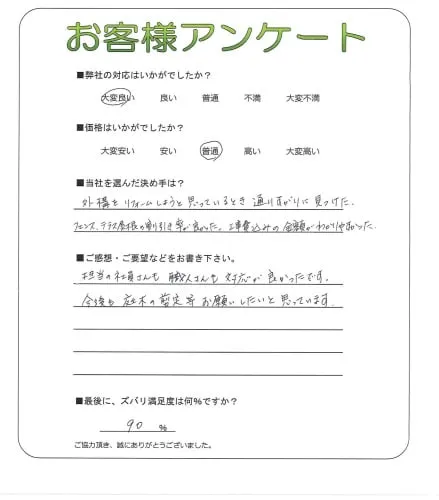 お客様アンケート
■弊社の対応はいかがでしたか？
大変良い 良い 普通 不満 大変不満
■価格はいかがでしたか？
大変安い 安い 普通 高い 大変高い
■当社を選んだ決め手は？
外構をリフォームしようと思っているとき通りすがりに見つけた.
フェンス、テラス屋根の割り引き率が良かった. 工事費込みの金額がわかりやすかった.
■ご感想・ご要望などをお書き下さい。
担当の社員さんも職人さんも対応が良かったです。
今後も庭木の剪定等お願いしたいと思っています.
■最後に、ズバリ満足度は何%ですか？
90 %
ご協力頂き、誠にありがとうございました。